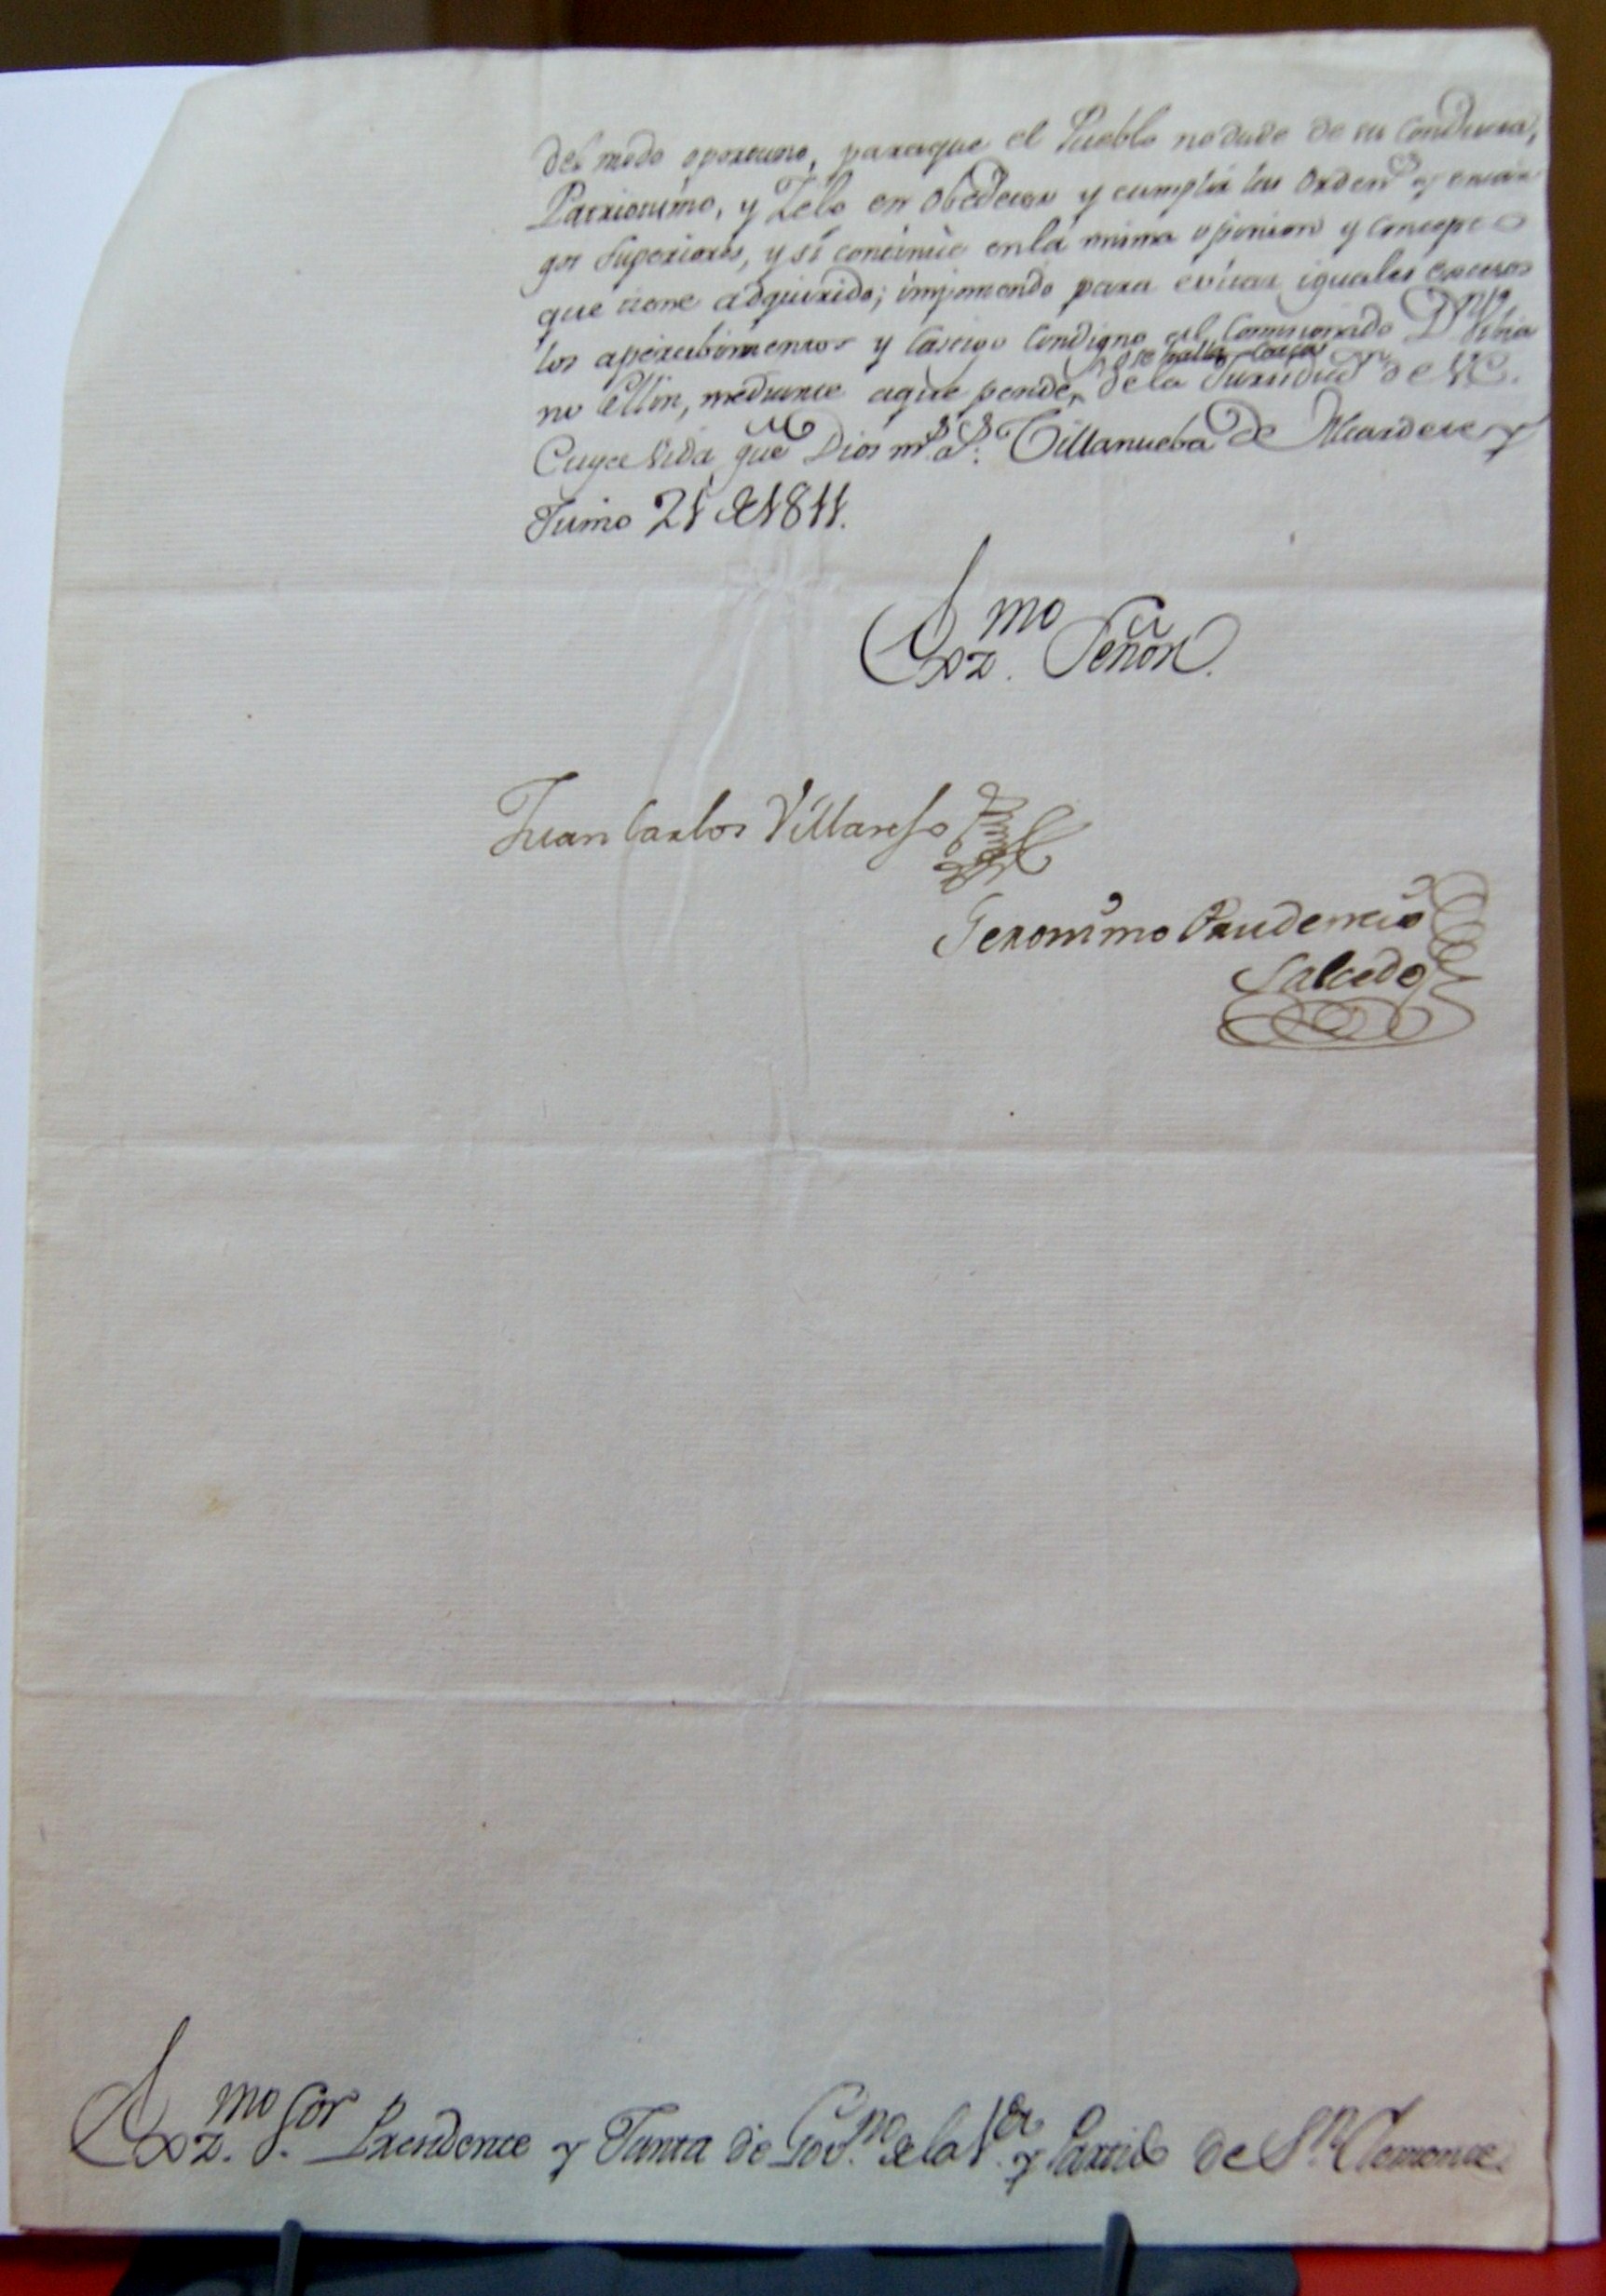 del modo oportuno, paraque el Pueblo no dude de su Conducta,
Patriotismo, y Zelo en obedecer y cumplir las Orden.s y encar
gos Superiores, y si continúe en la misma opinion y Concepto
que tiene adquirido; imponiendo para evitar iguales excesos
los apercibimientos y Castigo Condigno al Comisionado D.n
no Ellin, mediante aque pende, de la Jurisdic.n de VE.
Cuya Vida gue Dios m.s a.s Villanueba de Alcardete y
Junio 21 de 1811.
Exmo. Señor.
Juan Carlos Villarejo
Geronimo Prudencio
Salcedo
Exmo. Sor. Presidente y Junta de Gov.no de la V.a y Partido de S.n Clemente.